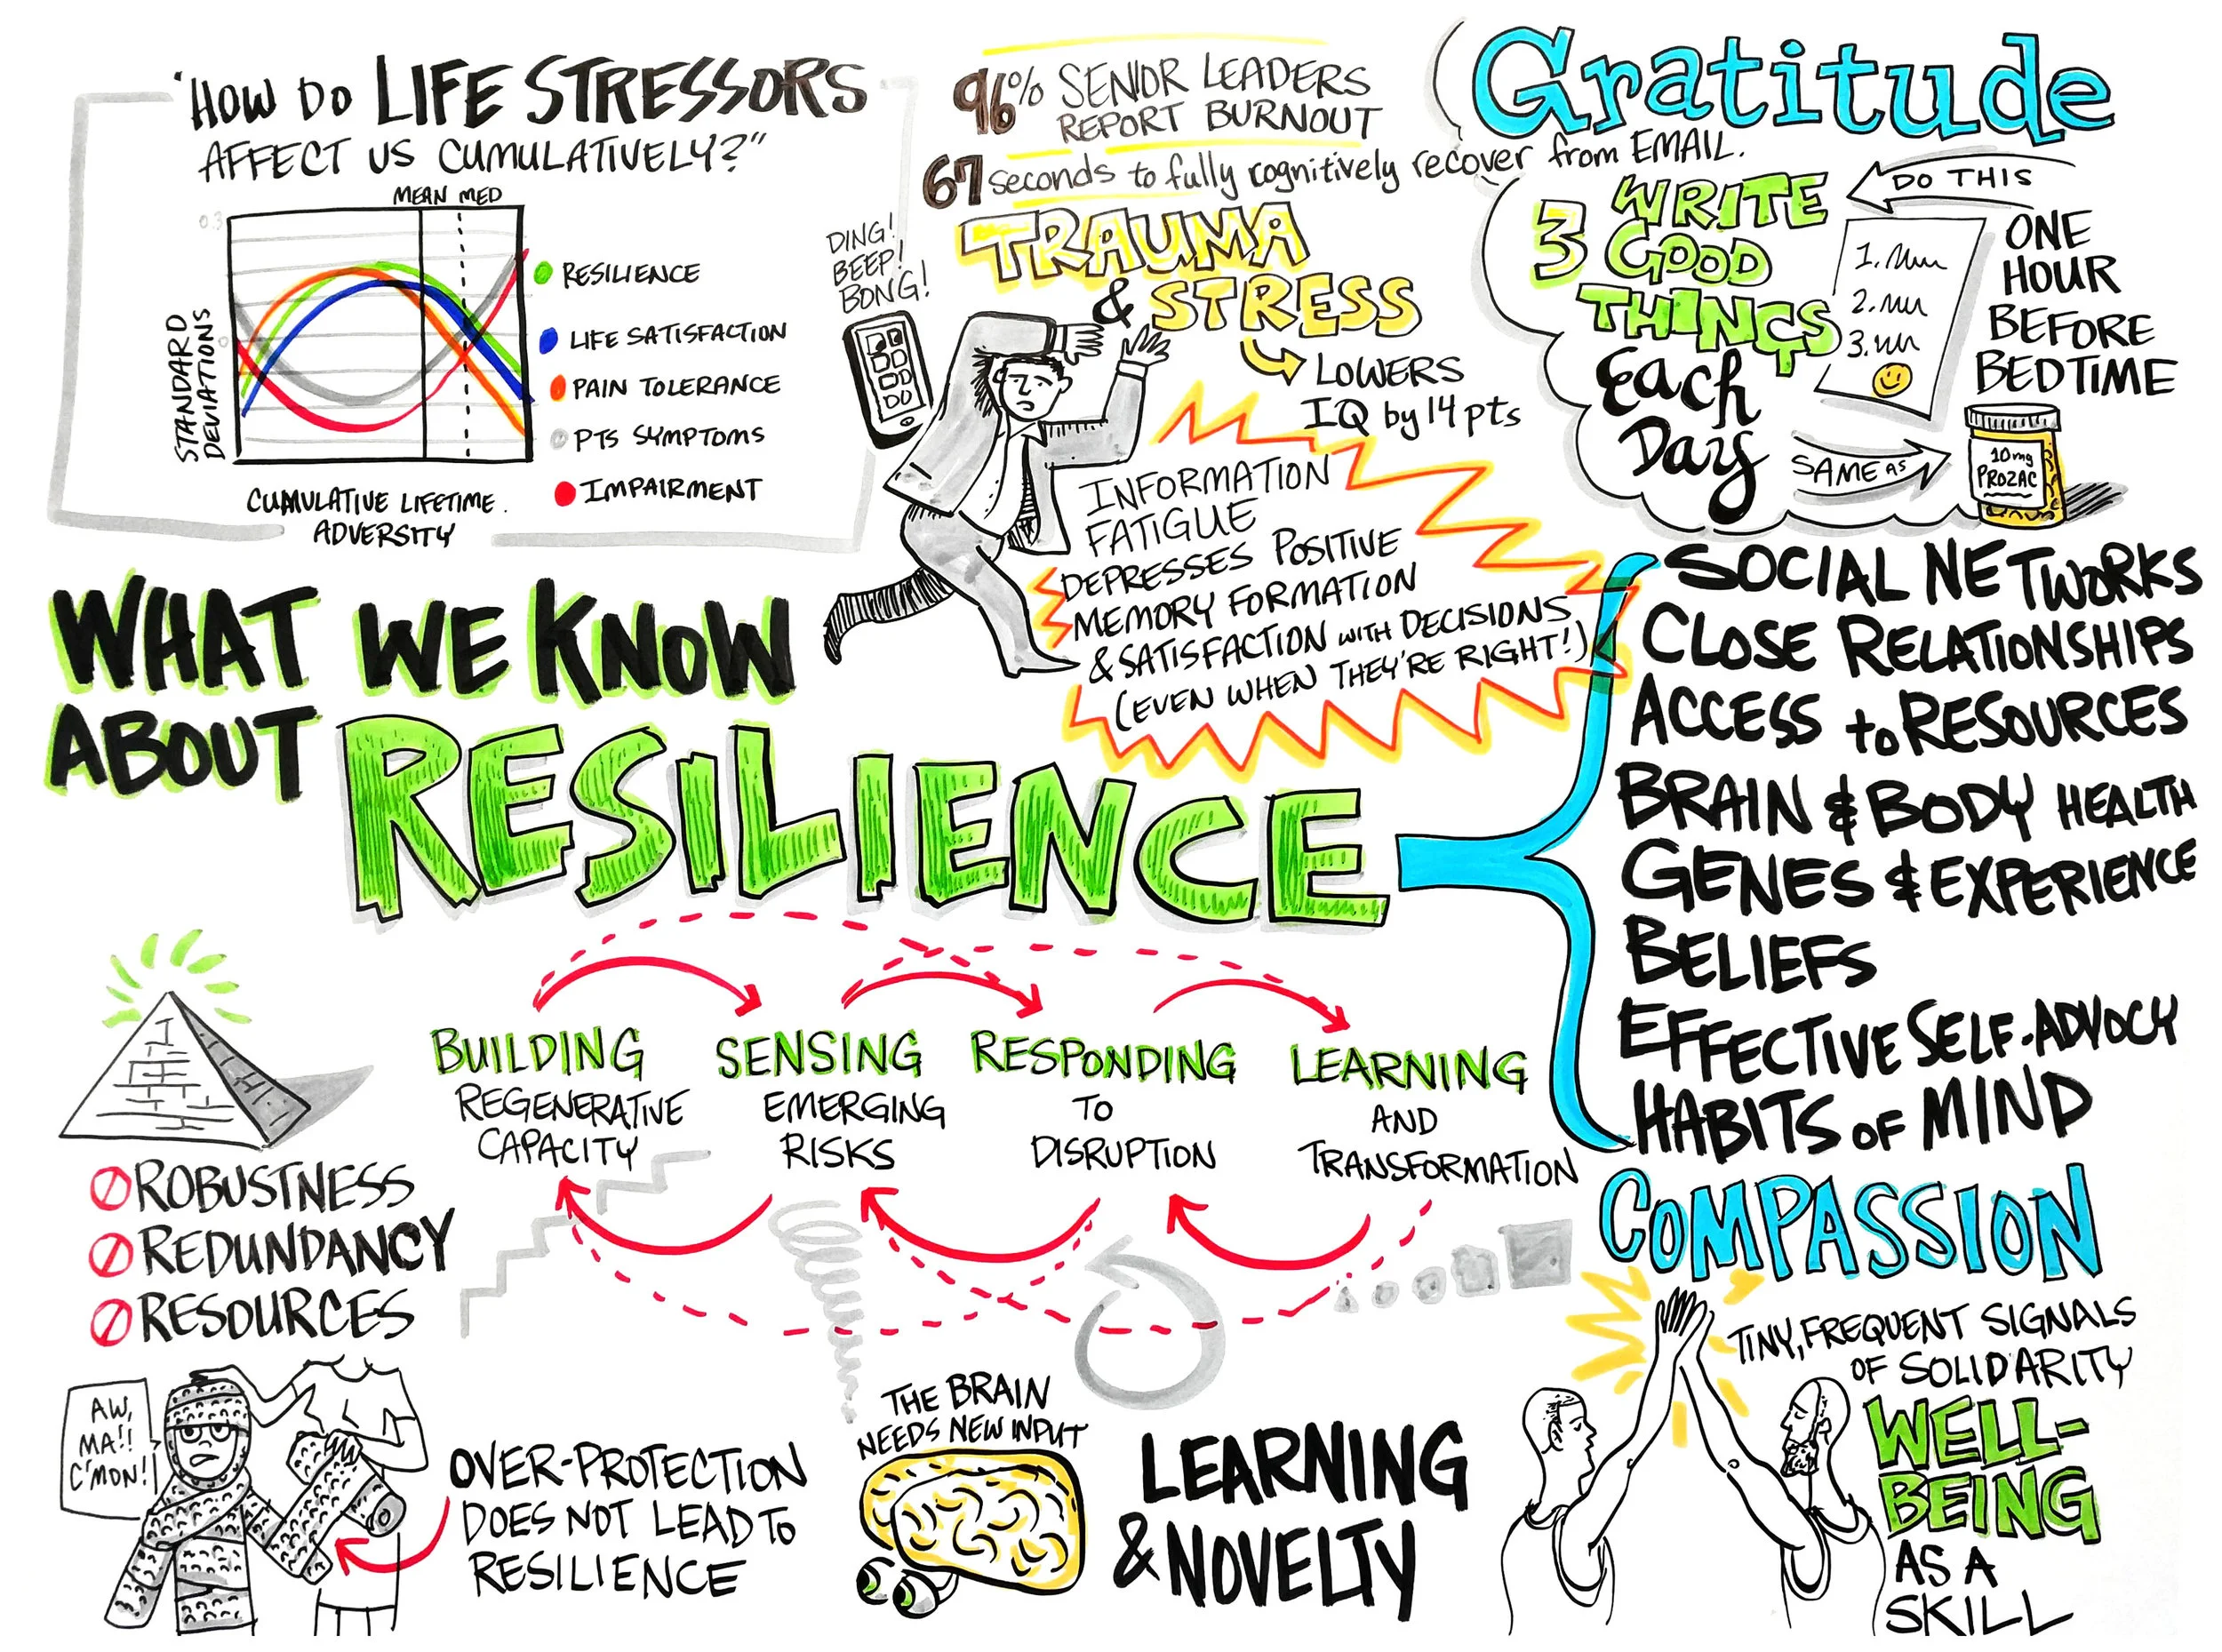 "HOW DO LIFE STRESSORS
AFFECT US CUMULATIVELY?"
MEAN MED
0.3
0
STANDARD
DEVIATIONS
CUMULATIVE LIFETIME.
ADVERSITY
RESILIENCE
LIFE SATISFACTION
PAIN TOLERANCE
PTS SYMPTOMS
IMPAIRMENT
96% SENIOR LEADERS
REPORT BURNOUT
67 seconds to fully cognitively recover from EMAIL.
TRAUMA
& STRESS
LOWERS
IQ by 14 pts
DING!
BEEP!
BONG!
INFORMATION
FATIGUE
DEPRESSES POSITIVE
MEMORY FORMATION
& SATISFACTION WITH DECISIONS
(EVEN WHEN THEY'RE RIGHT!)
Gratitude
WRITE
3 GOOD
THINGS
Each
Day
DO THIS
1.
2.
3.
ONE
HOUR
BEFORE
BEDTIME
SAME AS
10mg
PROZAC
WHAT WE KNOW
ABOUT RESILIENCE
SOCIAL NETWORKS
CLOSE RELATIONSHIPS
ACCESS to RESOURCES
BRAIN & BODY HEALTH
GENES & EXPERIENCE
BELIEFS
EFFECTIVE SELF-ADVOCY
HABITS OF MIND
BUILDING
REGENERATIVE
CAPACITY
SENSING
EMERGING
RISKS
RESPONDING
TO
DISRUPTION
LEARNING
AND
TRANSFORMATION
ROBUSTNESS
REDUNDANCY
RESOURCES
AW,
MA!!
C'MON!
OVER-PROTECTION
DOES NOT LEAD TO
RESILIENCE
THE BRAIN
NEEDS NEW INPUT
LEARNING
& NOVELTY
COMPASSION
TINY, FREQUENT SIGNALS
OF SOLIDARITY
WELL-
BEING
AS A
SKILL